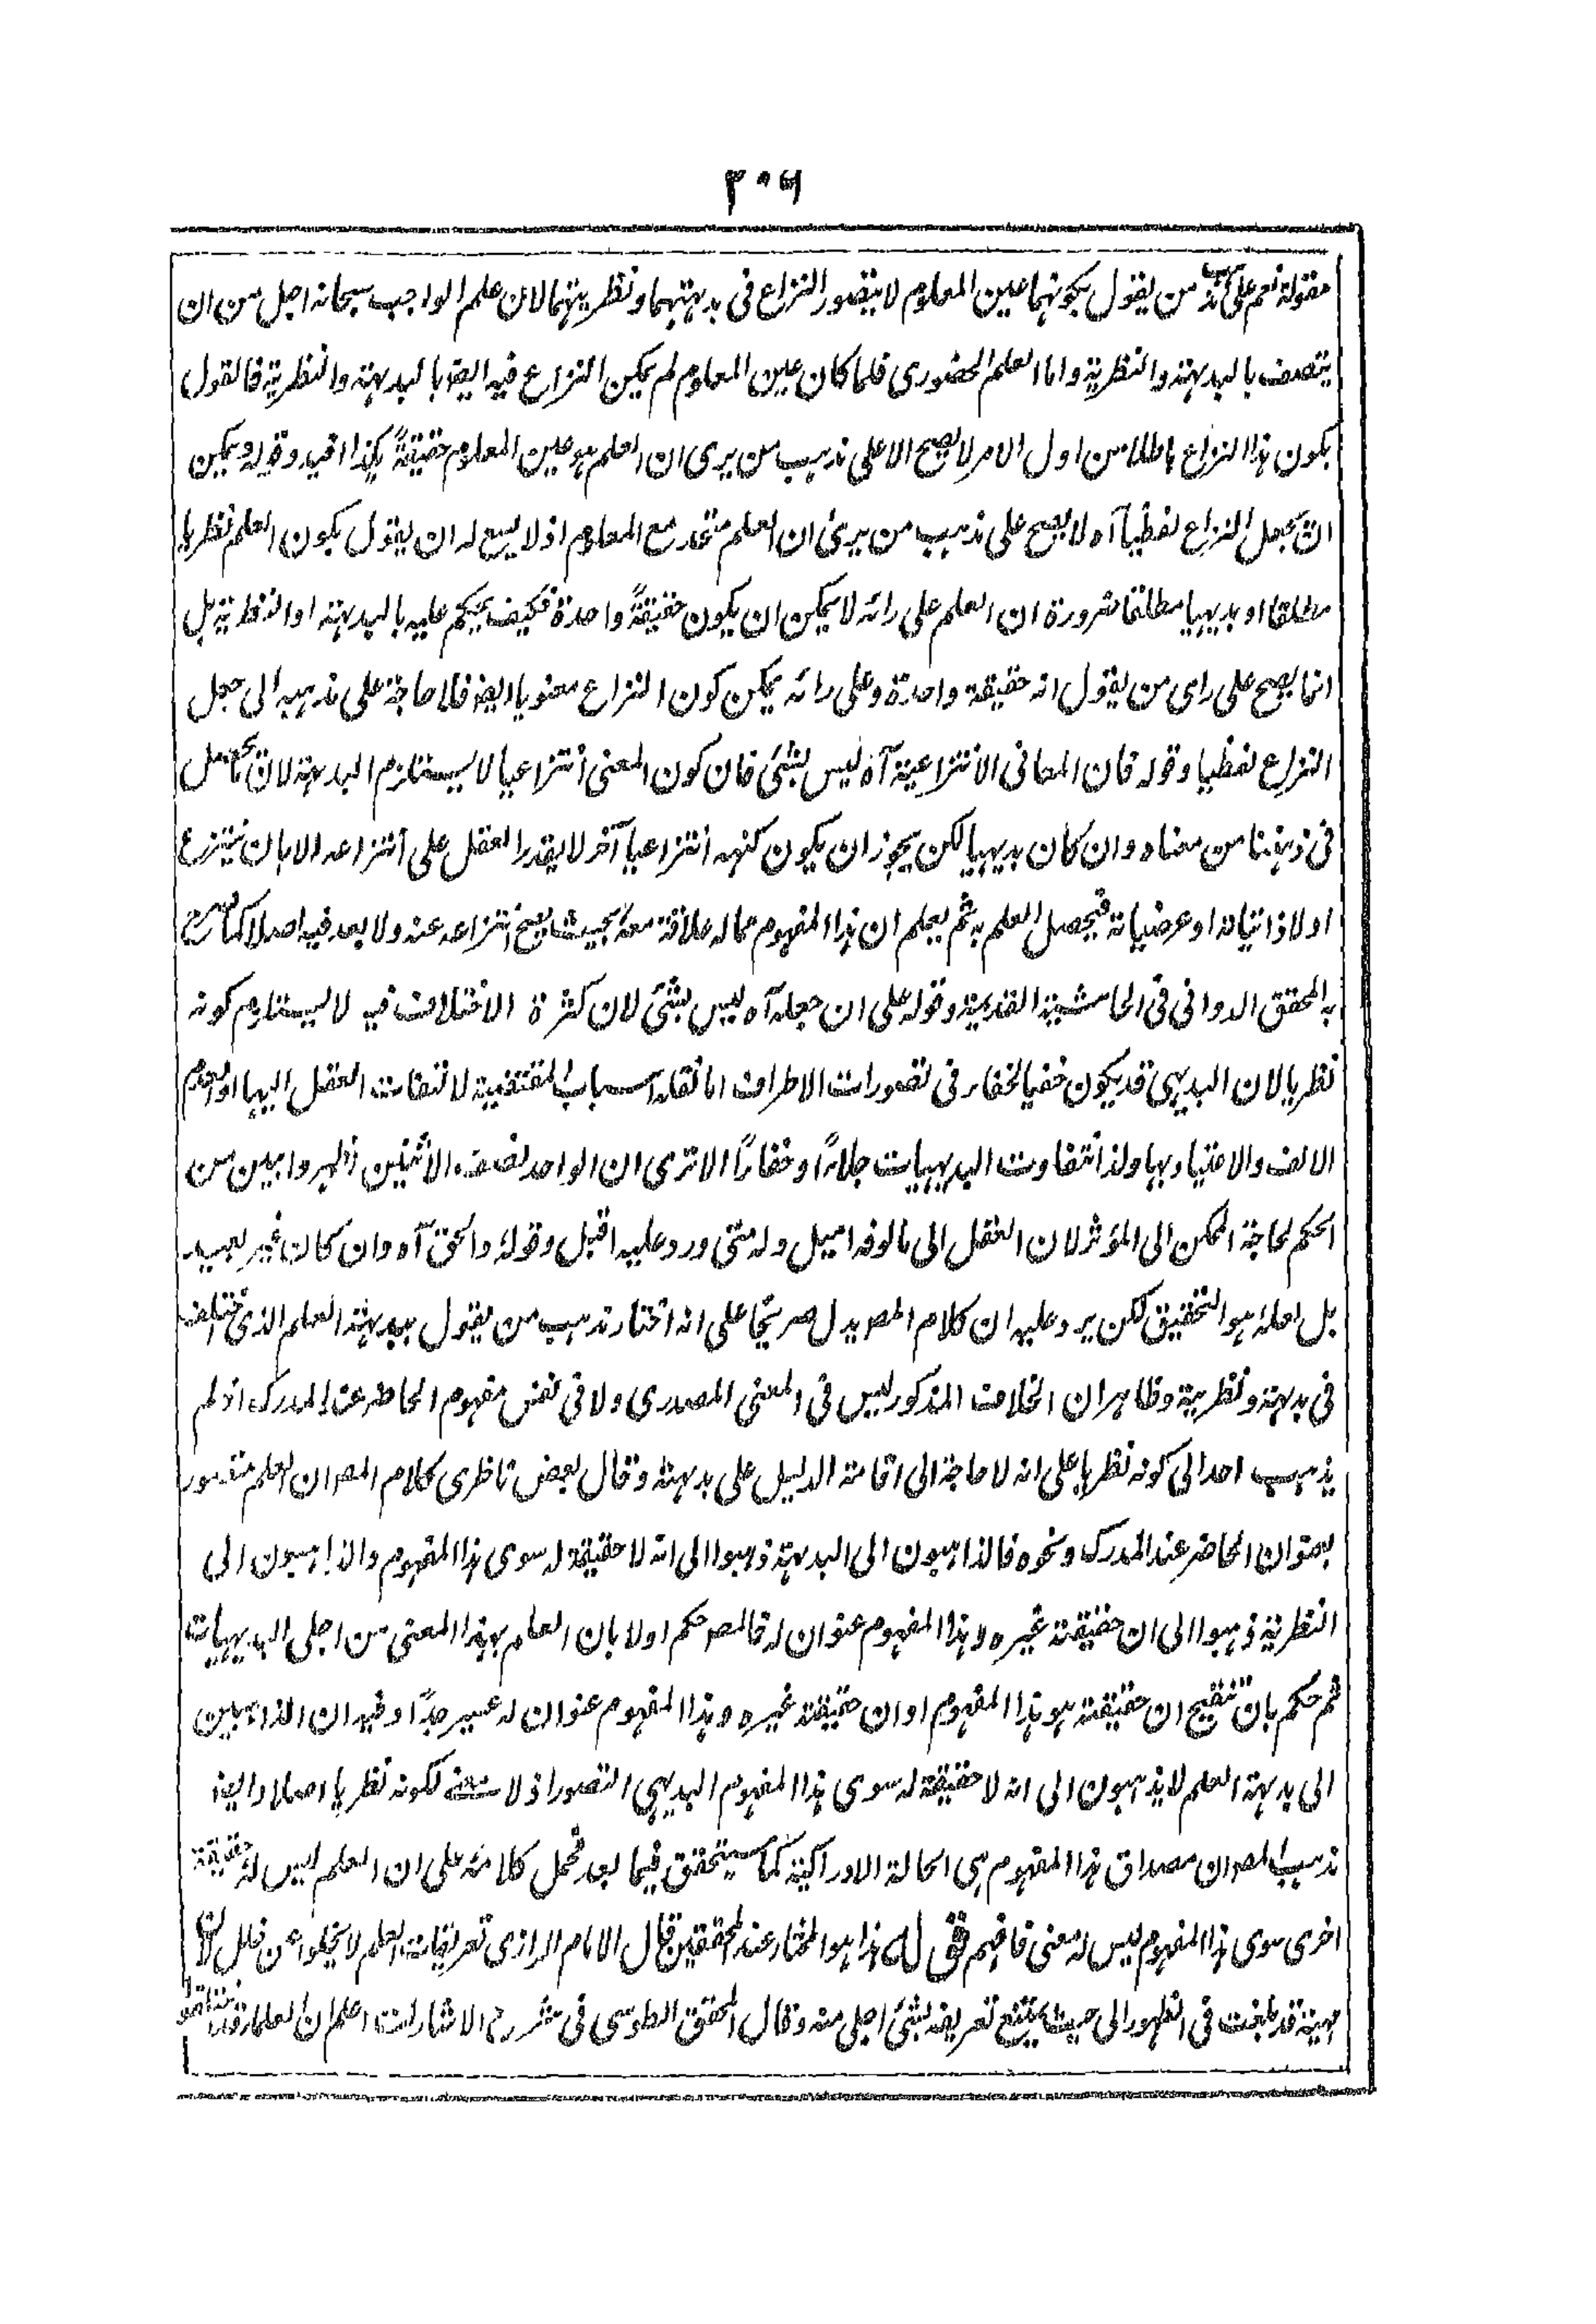 ٣٠٦
مقولة نعم على مذهب من يقول بكونهما عين المعلوم لا يتصور النزاع في بديهتهما ونظريتهما لان علم الواجب سبحانه اجل من ان
يتصف بالبديهة والنظرية واما العلم الحضوري فلما كان عين المعلوم لم يمكن النزاع فيه ايضا بالبديهة والنظرية فالقول
بكون هذا النزاع باطلا من اول الامر لا يصح الا على مذهب من يرى ان العلم هو عين المعلوم حقيقةً هكذا افيد وقوله ويمكن
ان يجعل النزاع لفظياً آه لا يصح على مذهب من يرى ان العلم متحد مع المعلوم اذ لا يسع له ان يقول بكون العلم نظريا
مطلقا او بديهيا مطلقا ضرورة ان العلم على رائه لا يمكن ان يكون حقيقةً واحدة فكيف يحكم عليه بالبديهة او النظرية بل
انما يصح على راى من يقول انه حقيقة واحدة وعلى رائه يمكن كون النزاع معنويا ايضا فلا حاجة على مذهبه الى جعل
النزاع لفظيا وقوله فان المعانى الانتزاعية آه ليس بشئ فان كون المعنى انتزاعيا لا يستلزم البديهة لان ما يحصل
فى ذهننا من معناه وان كان بديهيا لكن يجوز ان يكون كنهه انتزاعياً آخر لا يقدر العقل على انتزاعه الا بان ينتزع
اولا ذاتياته او عرضياته فيحصل العلم به ثم يعلم ان هذا المفهوم مما له علاقة معه بحيث يصح انتزاعه عنه ولا بعد فيه اصلا كما صرح
به المحقق الدوانى فى الحاشية القديمة وقوله على ان جعله آه ليس بشئ لان كثرة الاختلاف فيه لا يستلزم كونه
نظريا لان البديهى قد يكون خفيا لخفاء فى تصورات الاطراف اما لفقد اسباب المقتضية لالتفات العقل اليها او لعدم
الالف والاعتياد بها ولذا تتفاوت البديهيات جلاءً وخفاءً الا ترى ان الواحد نصف الاثنين اظهر وابين من
الحكم لحاجة الممكن الى المؤثر لان العقل الى مالوفه اميل وله متى ورد عليه اقبل وقوله والحق آه وان كان غير بعيد
بل لعله هو التحقيق لكن يرد عليه ان كلام المصـ يدل صريحا على انه اختار مذهب من يقول ببديهة العلم الذى اختلف
فى بديهته ونظريته وظاهر ان الخلاف المذكور ليس فى المعنى المصدرى ولا فى نفس مفهوم الحاضر عند المدرك اذ لم
يذهب احد الى كونه نظريا على انه لا حاجة الى اقامة الدليل على بديهته وقال بعض ناظرى كلام المصـ ان العلم متصور
بعنوان الحاضر عند المدرك ونحوه فالذاهبون الى البديهة ذهبوا الى انه لا حقيقة له سوى هذا المفهوم والذاهبون الى
النظرية ذهبوا الى ان حقيقته غيره وهذا المفهوم عنوان له فالمصـ حكم اولا بان العلم بهذا المعنى من اجلى البديهيات
ثم حكم بان تنقيح ان حقيقته هو هذا المفهوم او ان حقيقته غيره وهذا المفهوم عنوان له عسير جداً وفيه ان الذاهبين
الى بديهة العلم لا يذهبون الى انه لا حقيقة له سوى هذا المفهوم البديهى التصور اذ لا معنى لكونه نظريا اصلا وايضا
مذهب المصـ ان مصداق هذا المفهوم هى الحالة الادراكية كما سيتحقق فيما بعد فحمل كلامه على ان العلم ليس له حقيقة
اخرى سوى هذا المفهوم ليس له معنى فافهم قوله هذا هو المختار عند المحققين قال الامام الرازى تعريفات العلم لا يخلوا عن خلل لان
مهيته قد بلغت فى الظهور الى حيث يمتنع تعريفه بشئ اجلى منه وقال المحقق الطوسى فى شرح الاشارات اعلم ان العلماء